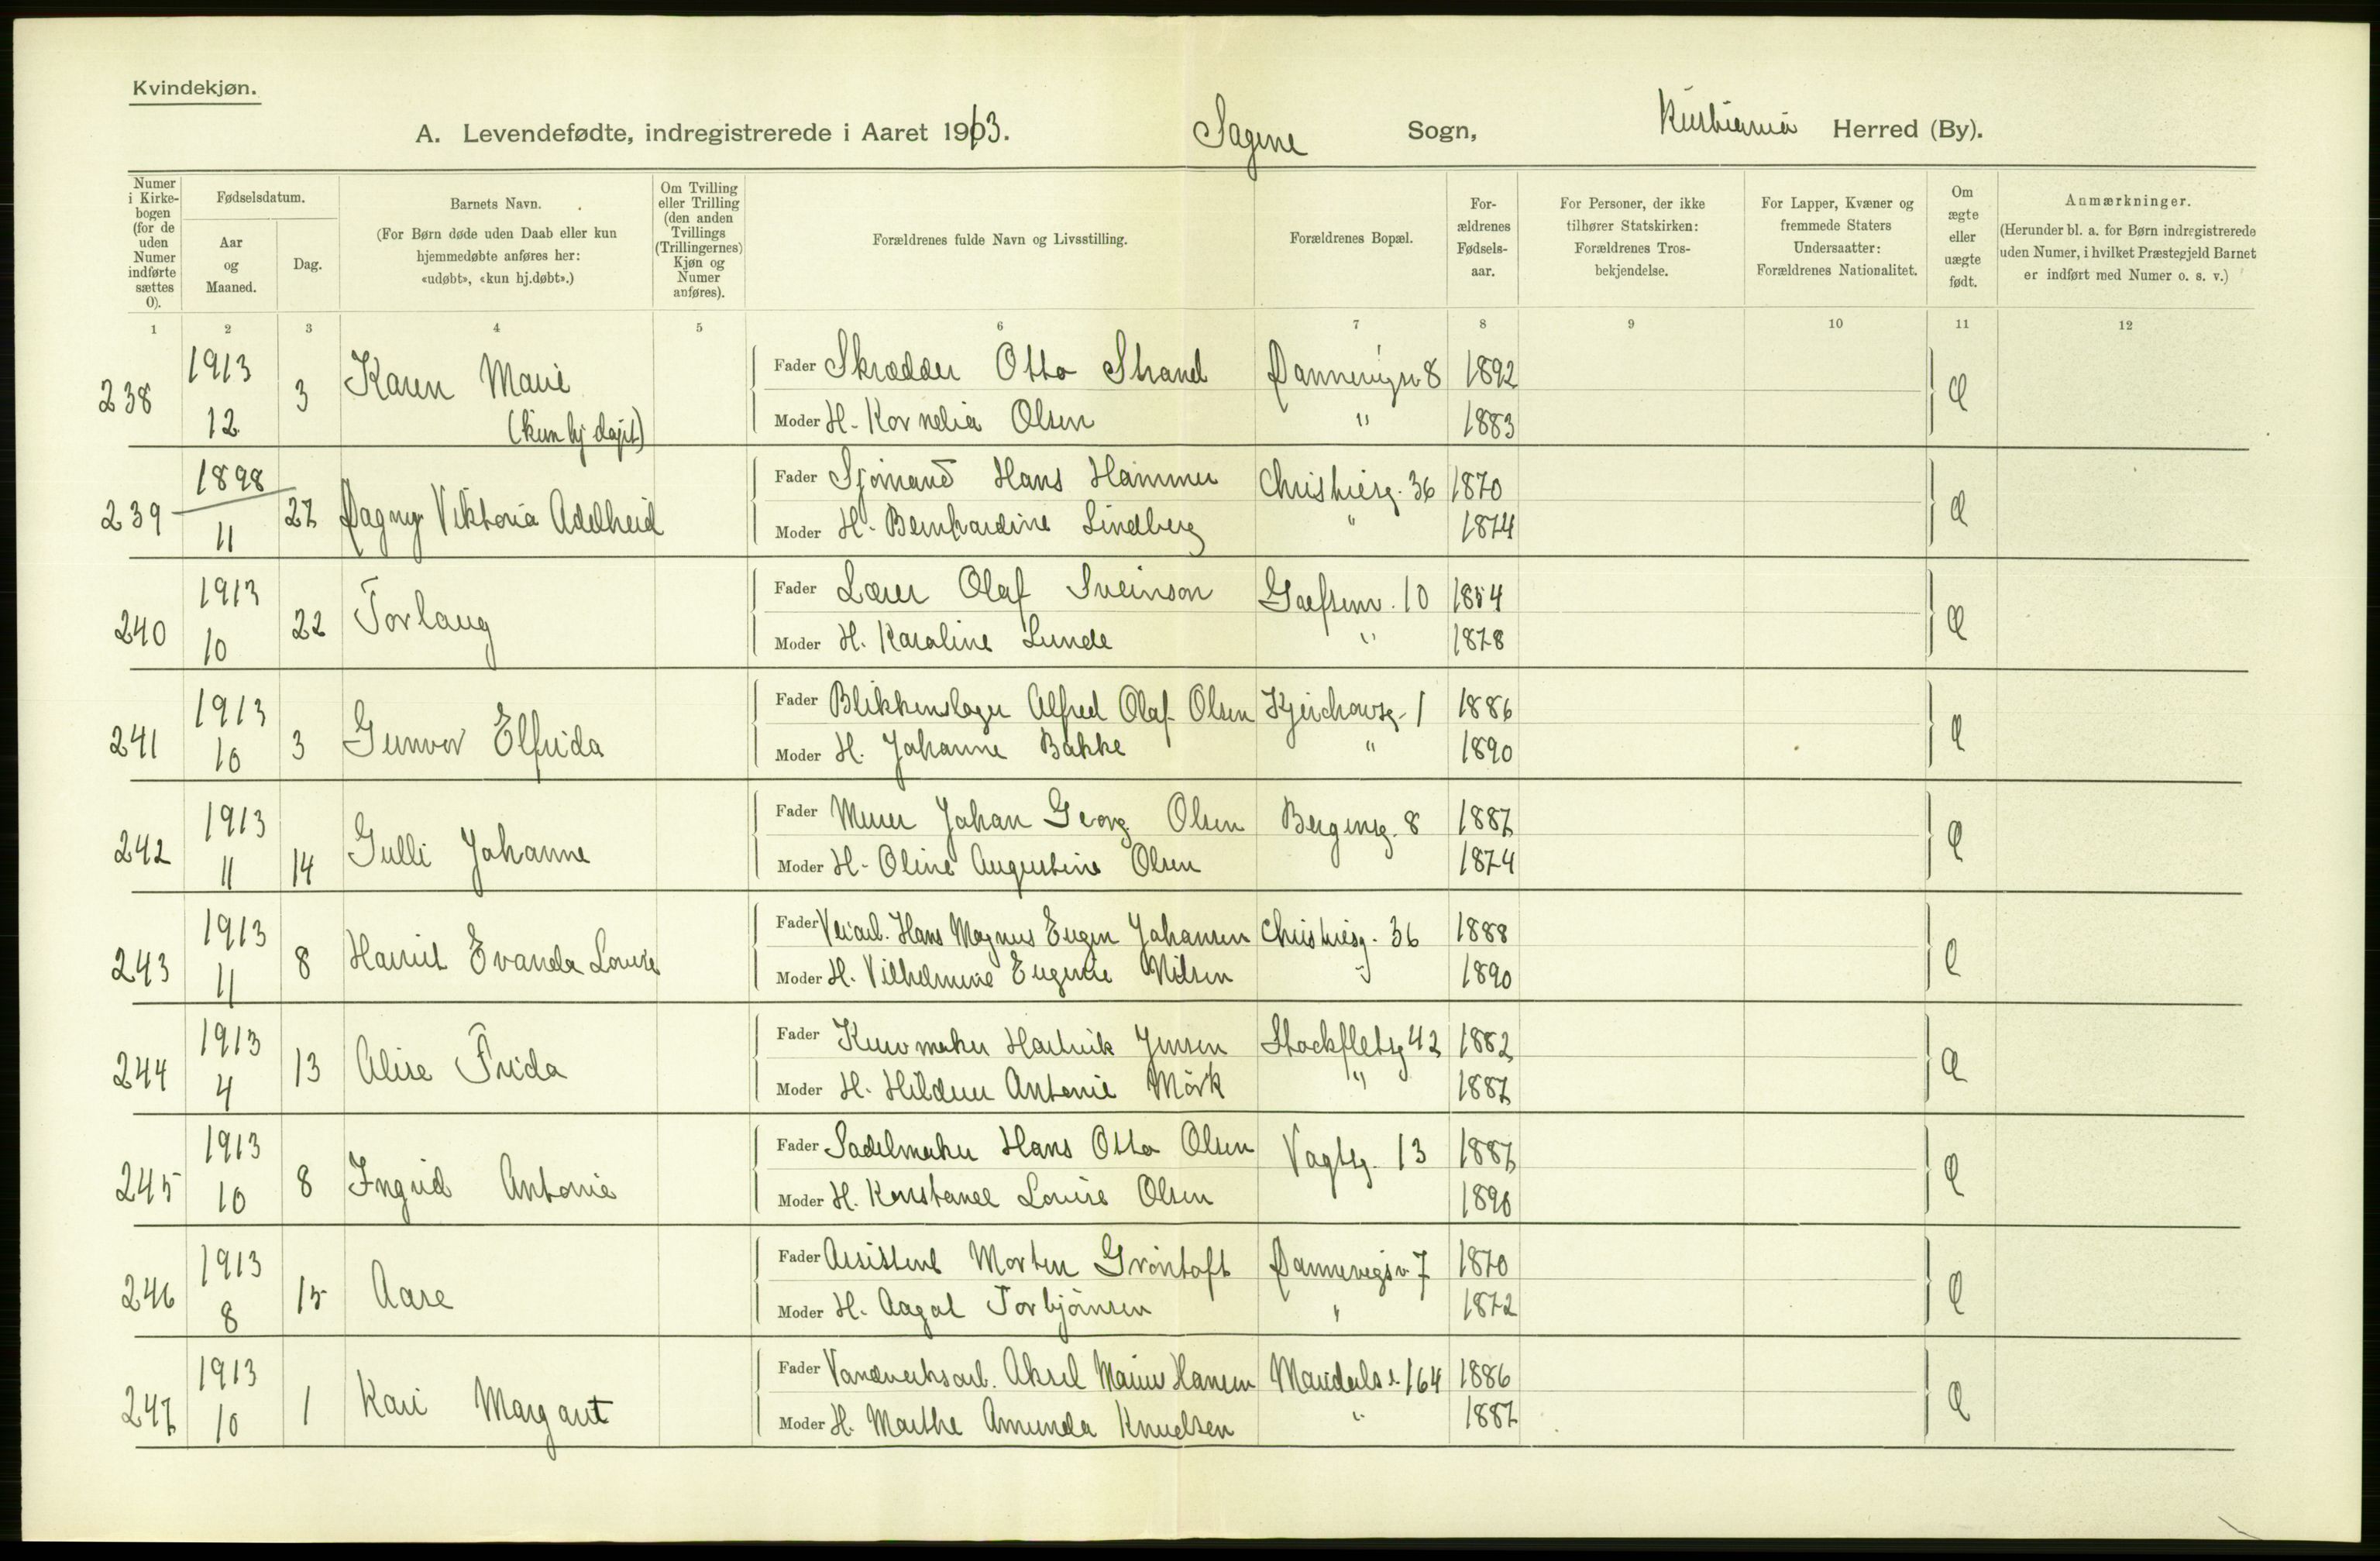 Kvindekjøn.
A. Levendefødte, indregistrerede i Aaret 1913. Sagene Sogn, Kristiania Herred (By).
Numer i Kirkebogen (for de uden Numer indførte sættes 0).
Fødselsdatum.
Aar og Maaned.
Dag.
Barnets Navn.
(For Børn døde uden Daab eller kun hjemmedøbte anføres her: «udøbt», «kun hj.døbt».)
Om Tvilling eller Trilling (den anden Tvillings (Trillingernes) Kjøn og Numer anføres).
Forældrenes fulde Navn og Livsstilling.
Forældrenes Bopæl.
Forældrenes Fødselsaar.
For Personer, der ikke tilhører Statskirken: Forældrenes Trosbekjendelse.
For Lapper, Kvæner og fremmede Staters Undersaatter: Forældrenes Nationalitet.
Om ægte eller uægte født.
Anmærkninger.
(Herunder bl. a. for Børn indregistrerede uden Numer, i hvilket Præstegjeld Barnet er indført med Numer o. s. v.)
1 2 3 4 5 6 7 8 9 10 11 12
238 1913 12 3 Karen Marie (kun hj døpt) Fader Skrædder Otto Strand Dannevigsv 8 1892 Æ
Moder H. Kornelia Olsen " 1883
239 1898 11 27 Dagny Viktoria Adelheid Fader Sjømand Hans Hammer Christiesg. 36 1870 Æ
Moder H. Bernhardine Lindberg " 1874
240 1913 10 22 Torlaug Fader Lærer Olaf Sveinson Grefsenv. 10 1854 Æ
Moder H. Karoline Lunde " 1878
241 1913 10 3 Gunvor Elfrida Fader Blikkenslager Alfred Olaf Olsen 1 1886 Æ
Moder H. Johanne Bakke " 1890
242 1913 11 14 Gulli Johanne Fader Murer Johan Georg Olsen Bergensg. 8 1887 Æ
Moder H. Oline Augustine Olsen 1874
243 1913 11 8 Harriet Evanda Louise Fader Veiarb. Hans Magnus Eugen Johansen Christiesg. 36 1888 Æ
Moder H. Vilhelmine Eugenie Nilsen " 1890
244 1913 4 13 Alise Frida Fader Kurvmaker Hartvik Jensen Stockfletsg 42 1882 Æ
Moder H. Hildur Antonie Mörk " 1887
245 1913 10 8 Ingrid Antonie Fader Sadelmaker Hans Otto Olsen Vogtsg. 13 1887 Æ
Moder H. Konstance Louise Olsen 1890
246 1913 8 15 Aase Fader Assistent Morten Gröntoft Dannevigsv 7 1870 Æ
Moder H. Aagot Torbjörnsen " 1872
247 1913 10 1 Kari Margaret Fader Vandverksarb. Aksel Marius Hansen Maridalsv. 164 1886 Æ
Moder H. Marthe Amunda Knudsen " 1887